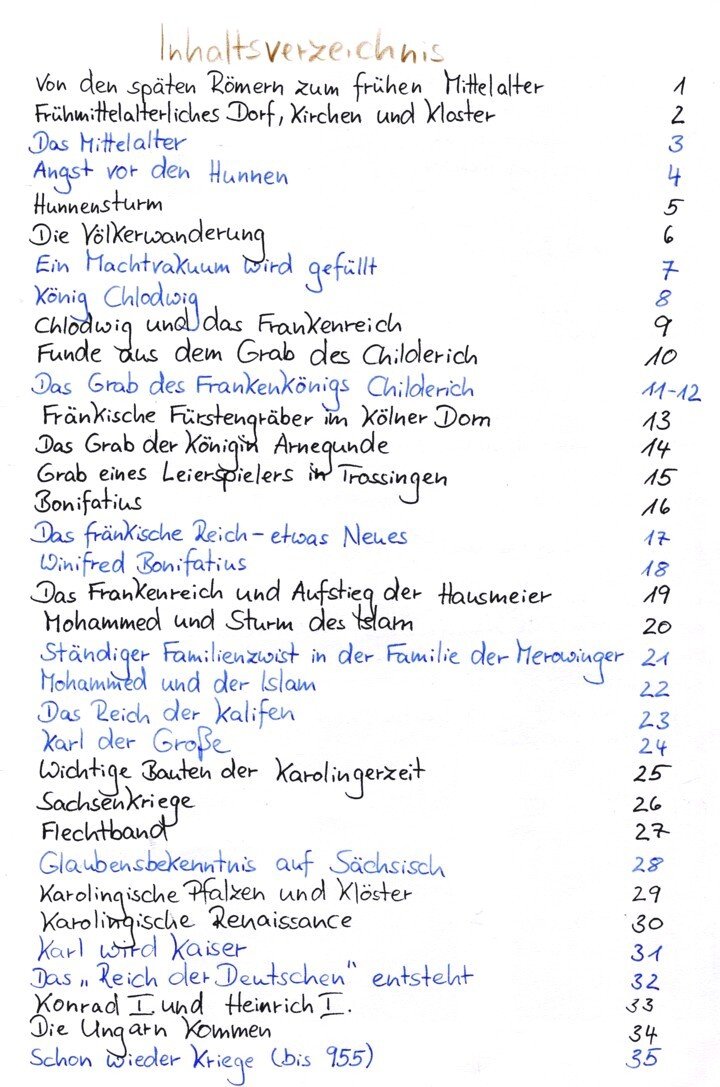 Inhaltsverzeichnis
Von den späten Römern zum frühen Mittelalter 1
Frühmittelalterliches Dorf, Kirchen und Kloster 2
Das Mittelalter 3
Angst vor den Hunnen 4
Hunnensturm 5
Die Völkerwanderung 6
Ein Machtvakuum wird gefüllt 7
König Chlodwig 8
Chlodwig und das Frankenreich 9
Funde aus dem Grab des Childerich 10
Das Grab des Frankenkönigs Childerich 11-12
Fränkische Fürstengräber im Kölner Dom 13
Das Grab der Königin Arnegunde 14
Grab eines Leierspielers in Trossingen 15
Bonifatius 16
Das fränkische Reich - etwas Neues 17
Winifred Bonifatius 18
Das Frankenreich und Aufstieg der Hausmeier 19
Mohammed und Sturm des Islam 20
Ständiger Familienzwist in der Familie der Merowinger 21
Mohammed und der Islam 22
Das Reich der Kalifen 23
Karl der Große 24
Wichtige Bauten der Karolingerzeit 25
Sachsenkriege 26
Flechtband 27
Glaubensbekenntnis auf Sächsisch 28
Karolingische Pfalzen und Klöster 29
Karolingische Renaissance 30
Karl wird Kaiser 31
Das „Reich der Deutschen" entsteht 32
Konrad I und Heinrich I. 33
Die Ungarn kommen 34
Schon wieder Kriege (bis 955) 35